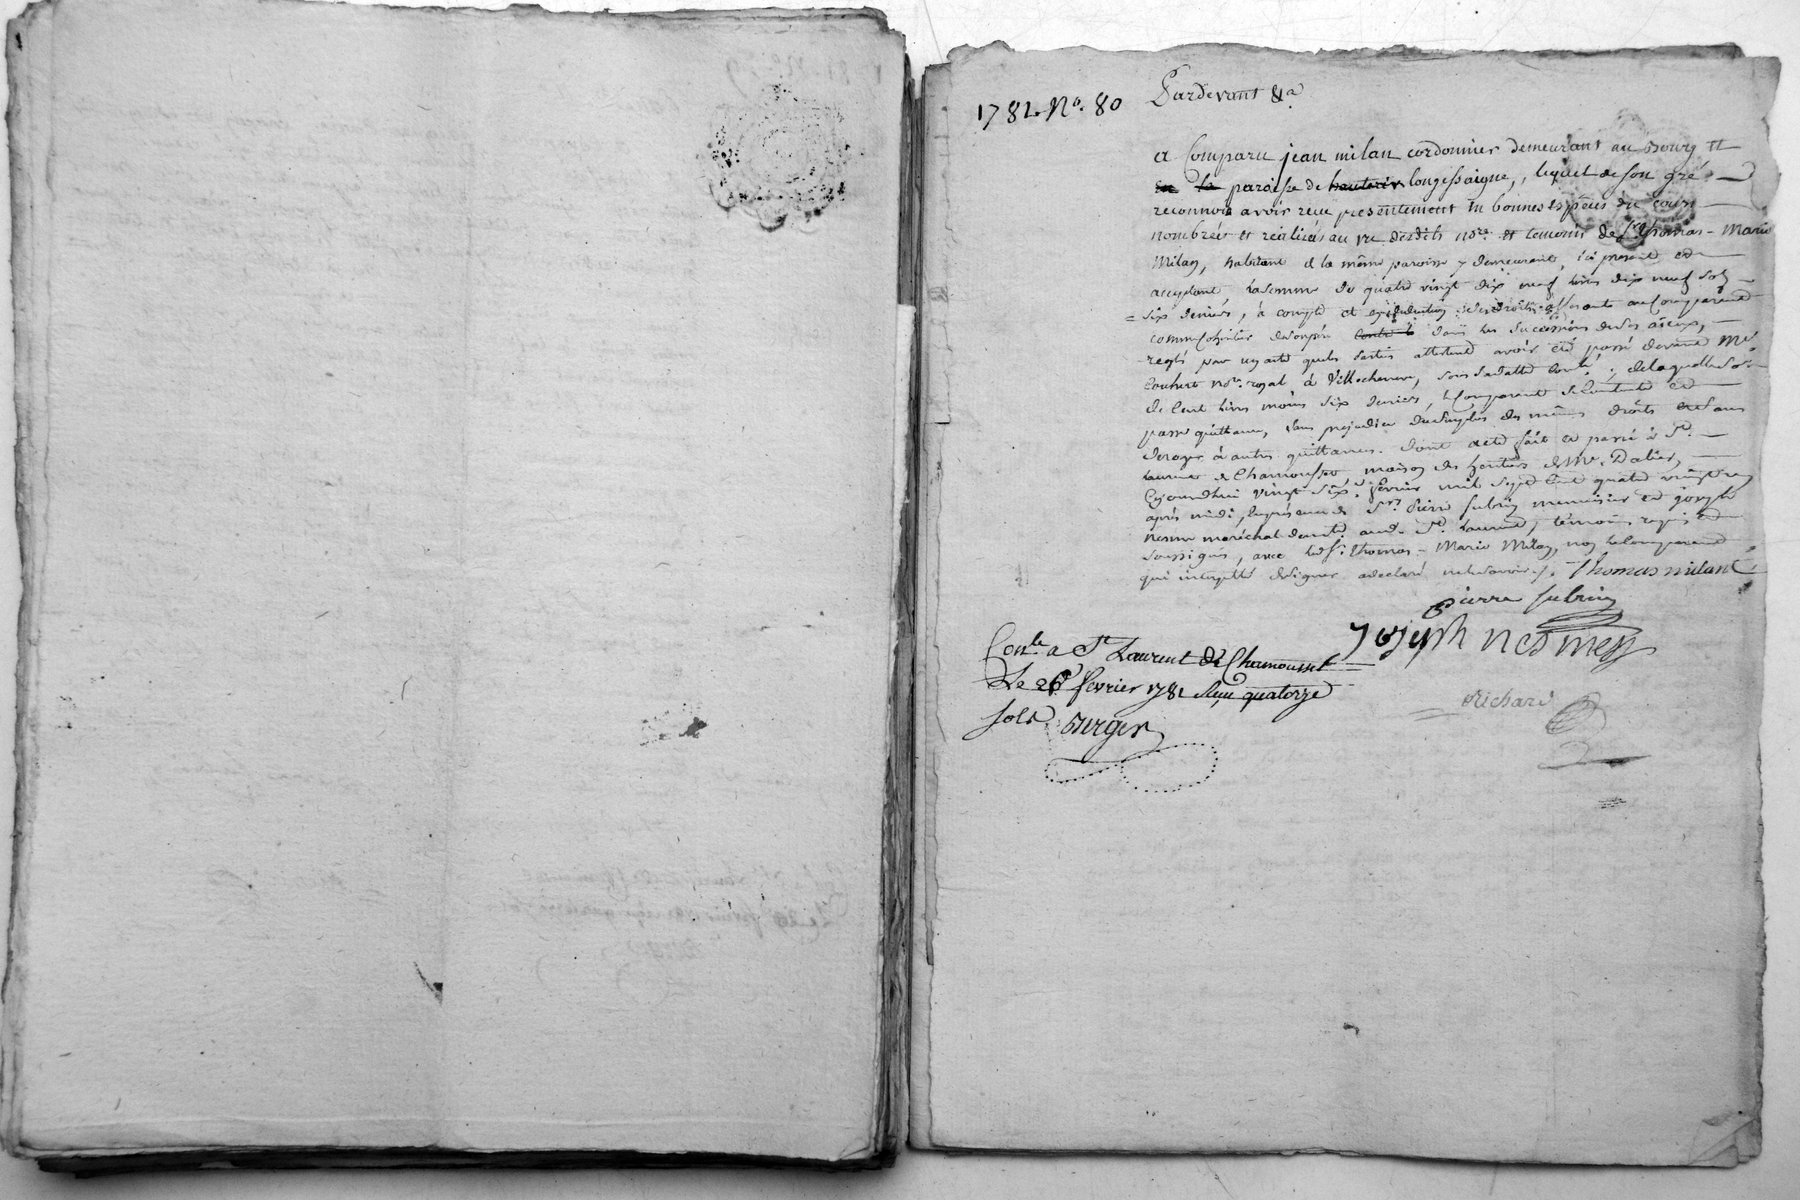 1781. N.º 80
Pardevant &.a
a Comparu jean milan cordonnier demeurant au Bourg et
en la paroisse de hauteriv longessaigne, lequel de son gré
reconnois avoir recu presentement en bonnes espéces du cours
nombrées et réalisés au vu desdits no.re et temoins de S.r thomas-Marie
Milan, habitant de la même paroisse y demeurant, ici present et
acceptant la somme de quatre vingt dix neuf livres dix neuf sols
six deniers, à compte et en déduction des droits afferants au Comparant
comme cohéritier de son père dans les successions de ses ayeux,
reglés par un acte que les parties attestent avoir été passé devant M.e
no.re royal à Villechenève, sous sa datte ; de laquelle somme
de Cent livres moins six deniers, le Comparant se contente et
passe quittance, sans prejudice du surplus des mêmes droits et sans
deroger à autres quittances. Dont acte fait et passé à S.t
Laurent de Chamousset maison des heritiers de M.e Dalier,
Cejourdhui vingt six fevrier mil sept cent quatre vingt un
après midi, en présence de S.r Pierre Subrin menuisier et joseph
Nesme maréchal demt. aud. S.t Laurent, témoins requis et
soussignés, avec led. S.r thomas-Marie Milan, non le comparant
qui interpellé de signer a declaré ne le savoir ./. Thomas milan
Pierre Subrin
Joseph nesmes
Con.lé a S.t Laurent de Chamousset
Le 26 fevrier 1781 Reçu quatorze
sols Burger
Richard